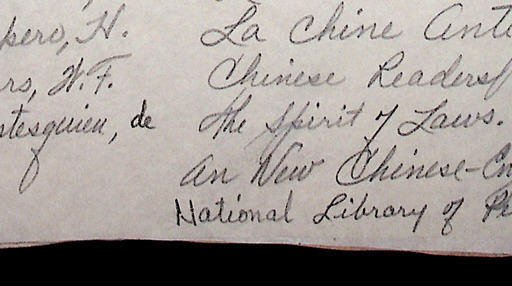 pero, H. La Chine Anti
rs, W.F. Chinese Readers
stesquieu, de The Spirit of Laws.
An New Chinese-En
National Library of Ph